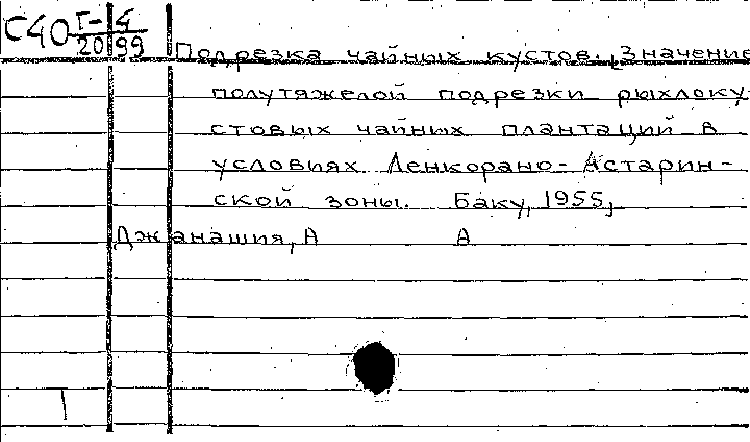 С40 Г-4
20 99
Подрезка чайных кустов. Значение
полутяжелой подрезки рыхлоку,
стовых чайных плантаций в
условиях Ленкорано-Астарин-
ской зоны. Баку, 1955,
Джанашия, А А